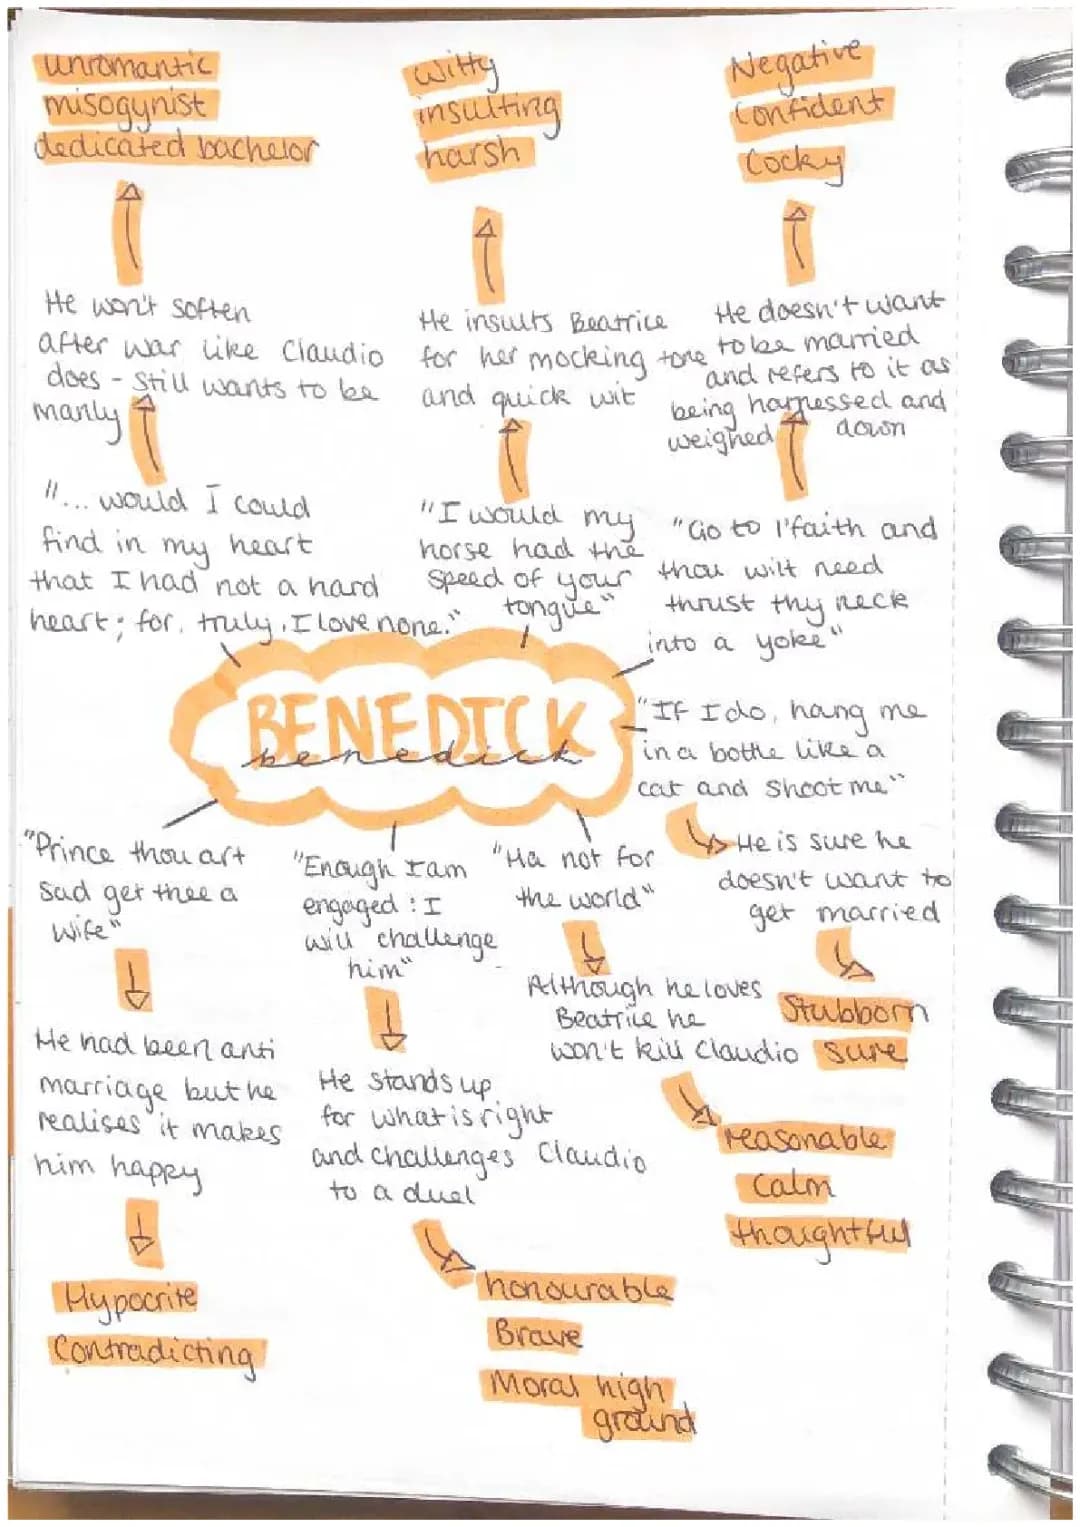 unromantic
misogynist
dedicated bachelor
He won't soften
after war like Claudio
does - still wants to be
manly
"... would I could
find in my heart
that I had not a hard
heart; for, truly, I love none."
witty
insulting
harsh
He insults Beatrice
for her mocking tone
and quick wit
"I would my
horse had the
speed of your
tongue"
Negative
confident
Cocky
He doesn't want
to be married
and refers to it as
being harnessed and
weighed down
"Go to I'faith and
thou wilt need
thrust thy neck
into a yoke"
BENEDICK
benedick
"If I do, hang me
in a bottle like a
cat and shoot me"
He is sure he
doesn't want to
get married
Stubborn
sure
"Prince thou art
sad get thee a
wife"
He had been anti
marriage but he
realises it makes
him happy
Hypocrite
Contradicting
"Enough I am
engaged: I
will challenge
him"
He stands up
for what is right
and challenges Claudio
to a duel
honourable
Brave
Moral high
ground
"Ha not for
the world"
Although he loves
Beatrice he
won't kill Claudio
reasonable
calm
thoughtful